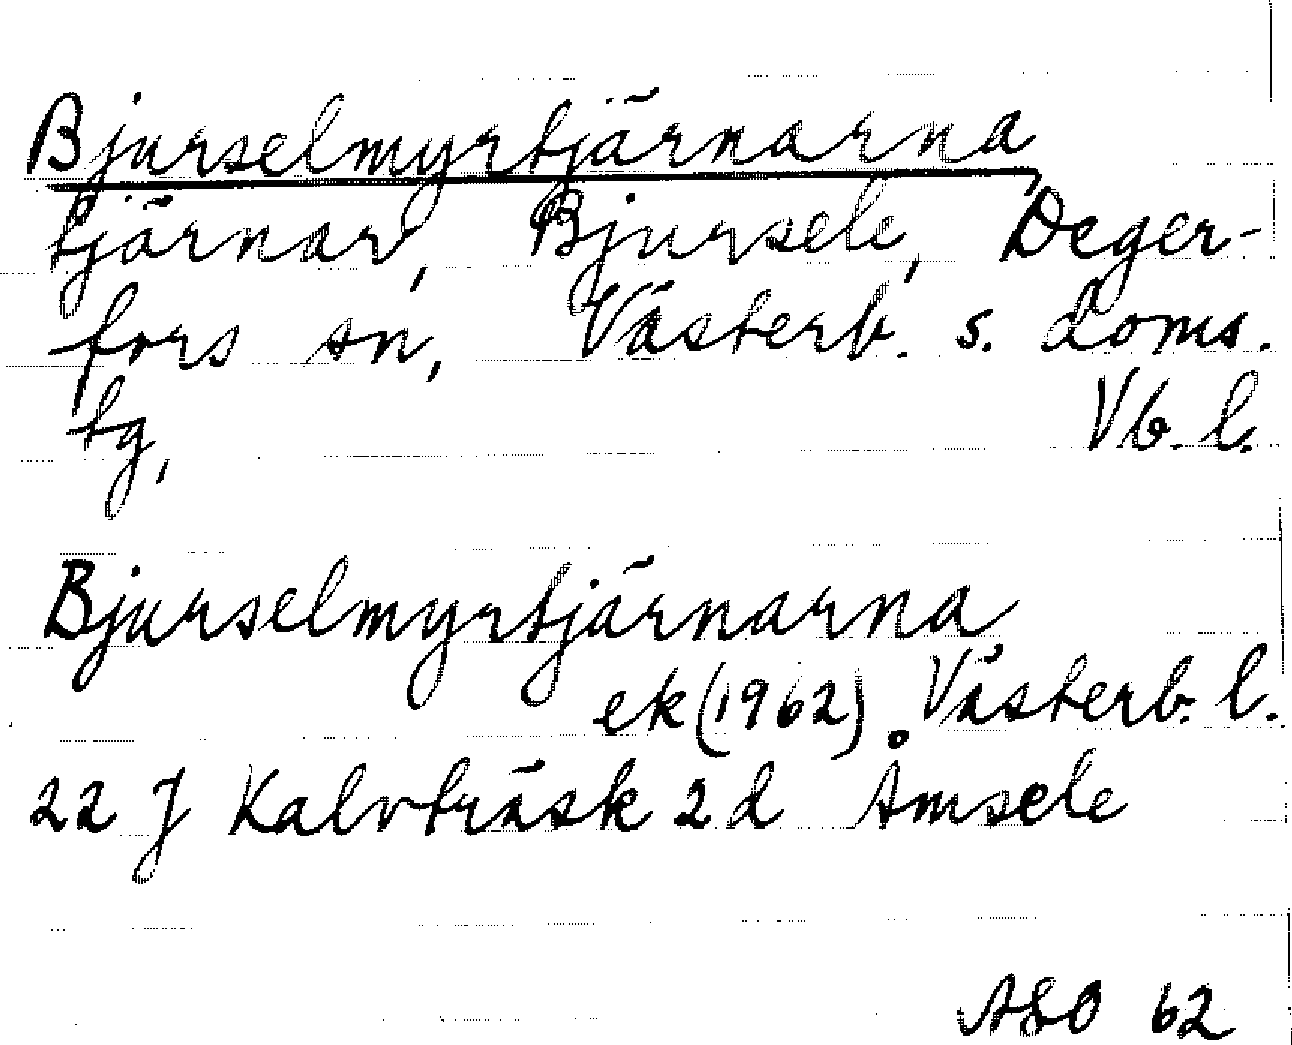 Bjurselmyrtjärnarna
tjärnar, Bjursele, Deger-
fors sn, Västerb. s. doms.
tg, Vb. l.
Bjurselmyrtjärnarna
ek (1962) Västerb. l.
22 J Kalvträsk 2 d Åmsele
ASO 62